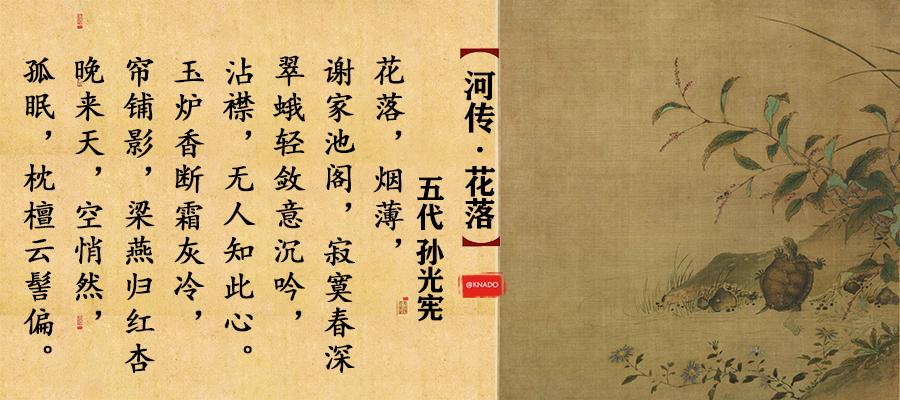 【河传·花落】
五代 孙光宪
@KNADO
花落，烟薄，
谢家池阁，寂寞春深
翠蛾轻敛意沉吟，
沾襟，无人知此心。
玉炉香断霜灰冷，
帘铺影，梁燕归红杏
晚来天，空悄然，
孤眠，枕檀云髻偏。